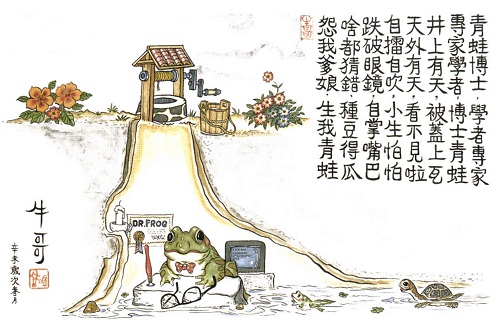 青蛙博士·學者專家
專家學者·博士青蛙
井上有天·被蓋上瓦
天外有天·看不見啦
自擂自吹·小生怕怕
跌破眼鏡·自掌嘴巴
啥都猜錯·種豆得瓜
怨我爹娘 生我青蛙
牛哥
辛未歲次月
DR.FROG